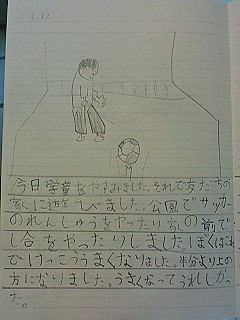 3.12
今日学童をやすみました。それで友だちの
家に遊びました。公園でサッカー
のれんしゅうをやったり家の前で
し合をやったりしました。ぼくはこれ
でけっこううまくなりました。半分より上の
方になりました。うまくなってうれしかっ
た。